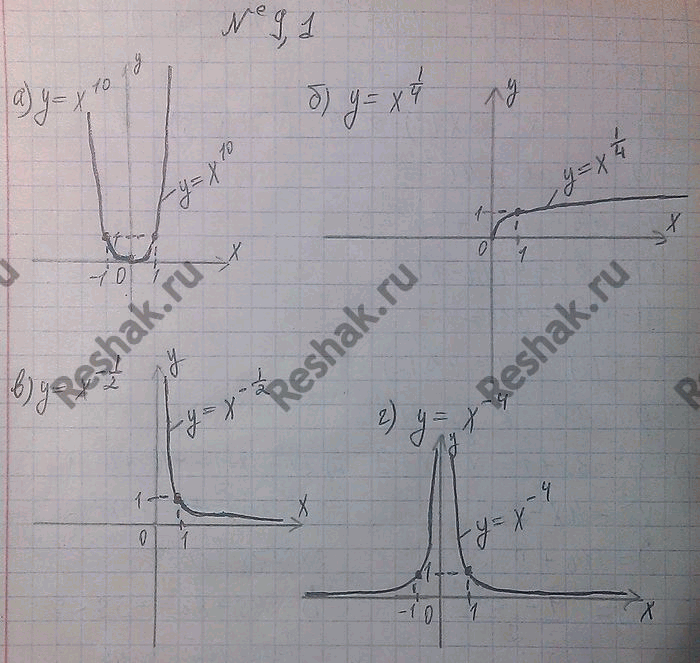 № 9,1
а) y = x^10
y
y = x^10
1
x
-1 0 1
б) y = x^(1/4)
y
y = x^(1/4)
1
x
0 1
в) y = x^(-1/2)
y
y = x^(-1/2)
1
x
0 1
г) y = x^-4
y
y = x^-4
1
x
-1 0 1
Reshak.ru
Reshak.ru
Reshak.ru